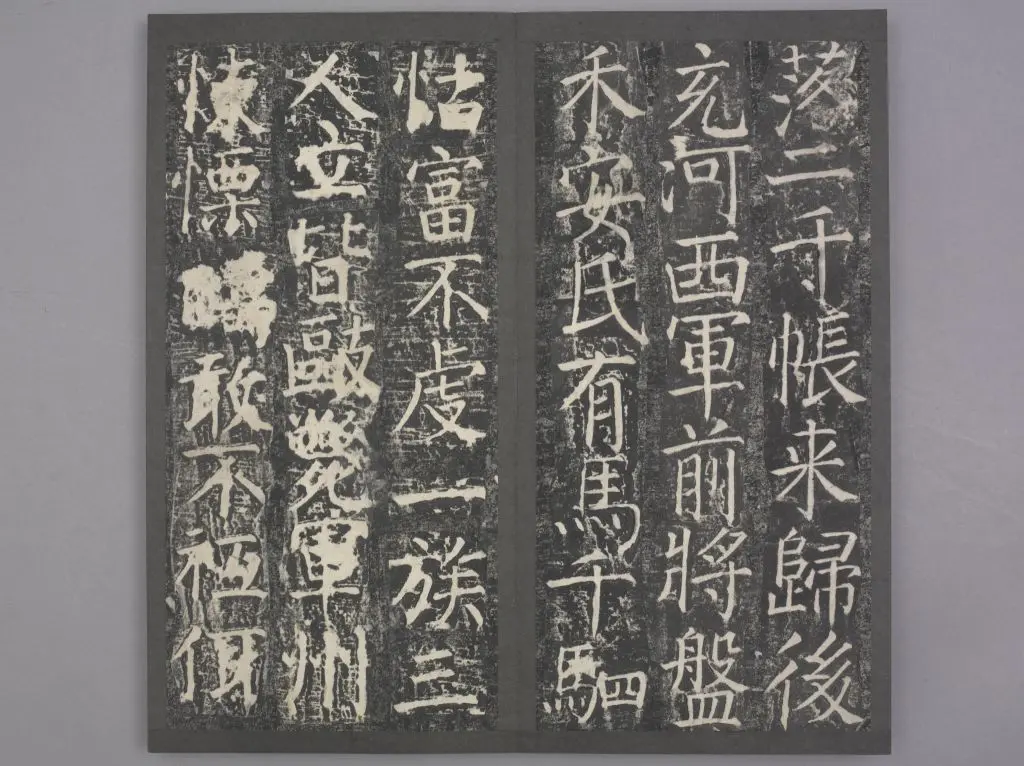 落二千帳来歸後
充河西軍前將盤
禾安氏有馬千駟
怙富不虔一族三
人立皆毆斃軍州
悚慄疇敢不祗俄